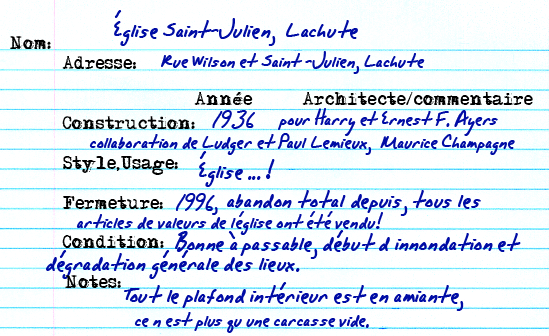 Nom: Église Saint-Julien, Lachute
Adresse: Rue Wilson et Saint-Julien, Lachute
Année Architecte/commentaire
Construction: 1936 pour Harry et Ernest F. Ayers
collaboration de Ludger et Paul Lemieux, Maurice Champagne
Style,Usage: Église...!
Fermeture: 1996, abandon total depuis, tous les
articles de valeurs de léglise ont été vendu!
Condition: Bonne à passable, début d innondation et
dégradation générale des lieux.
Notes: Tout le plafond intérieur est en amiante,
ce n est plus qu une carcasse vide.